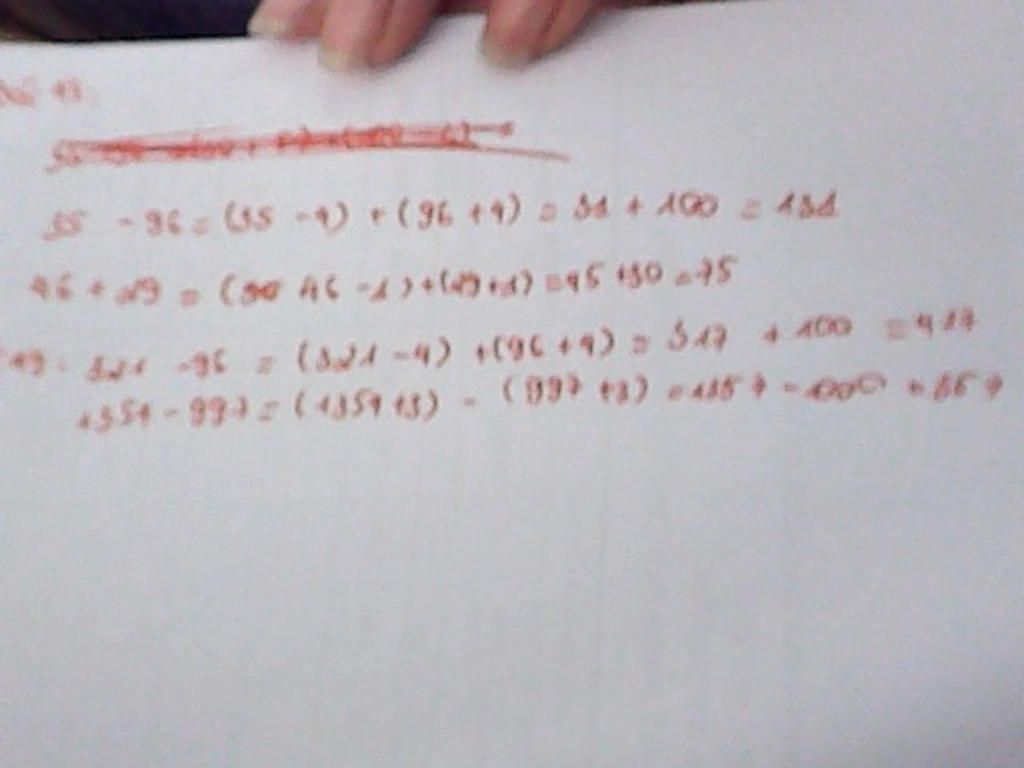 35 - 96 = (35 - 4) + (96 + 4) = 31 + 100 = 131
46 + 29 = (46 - 1) + (29 + 1) = 45 + 30 = 75
321 - 96 = (321 - 4) + (96 + 4) = 317 + 100 = 417
1354 - 997 = (1354 + 3) - (997 + 3) = 1357 - 1000 = 357